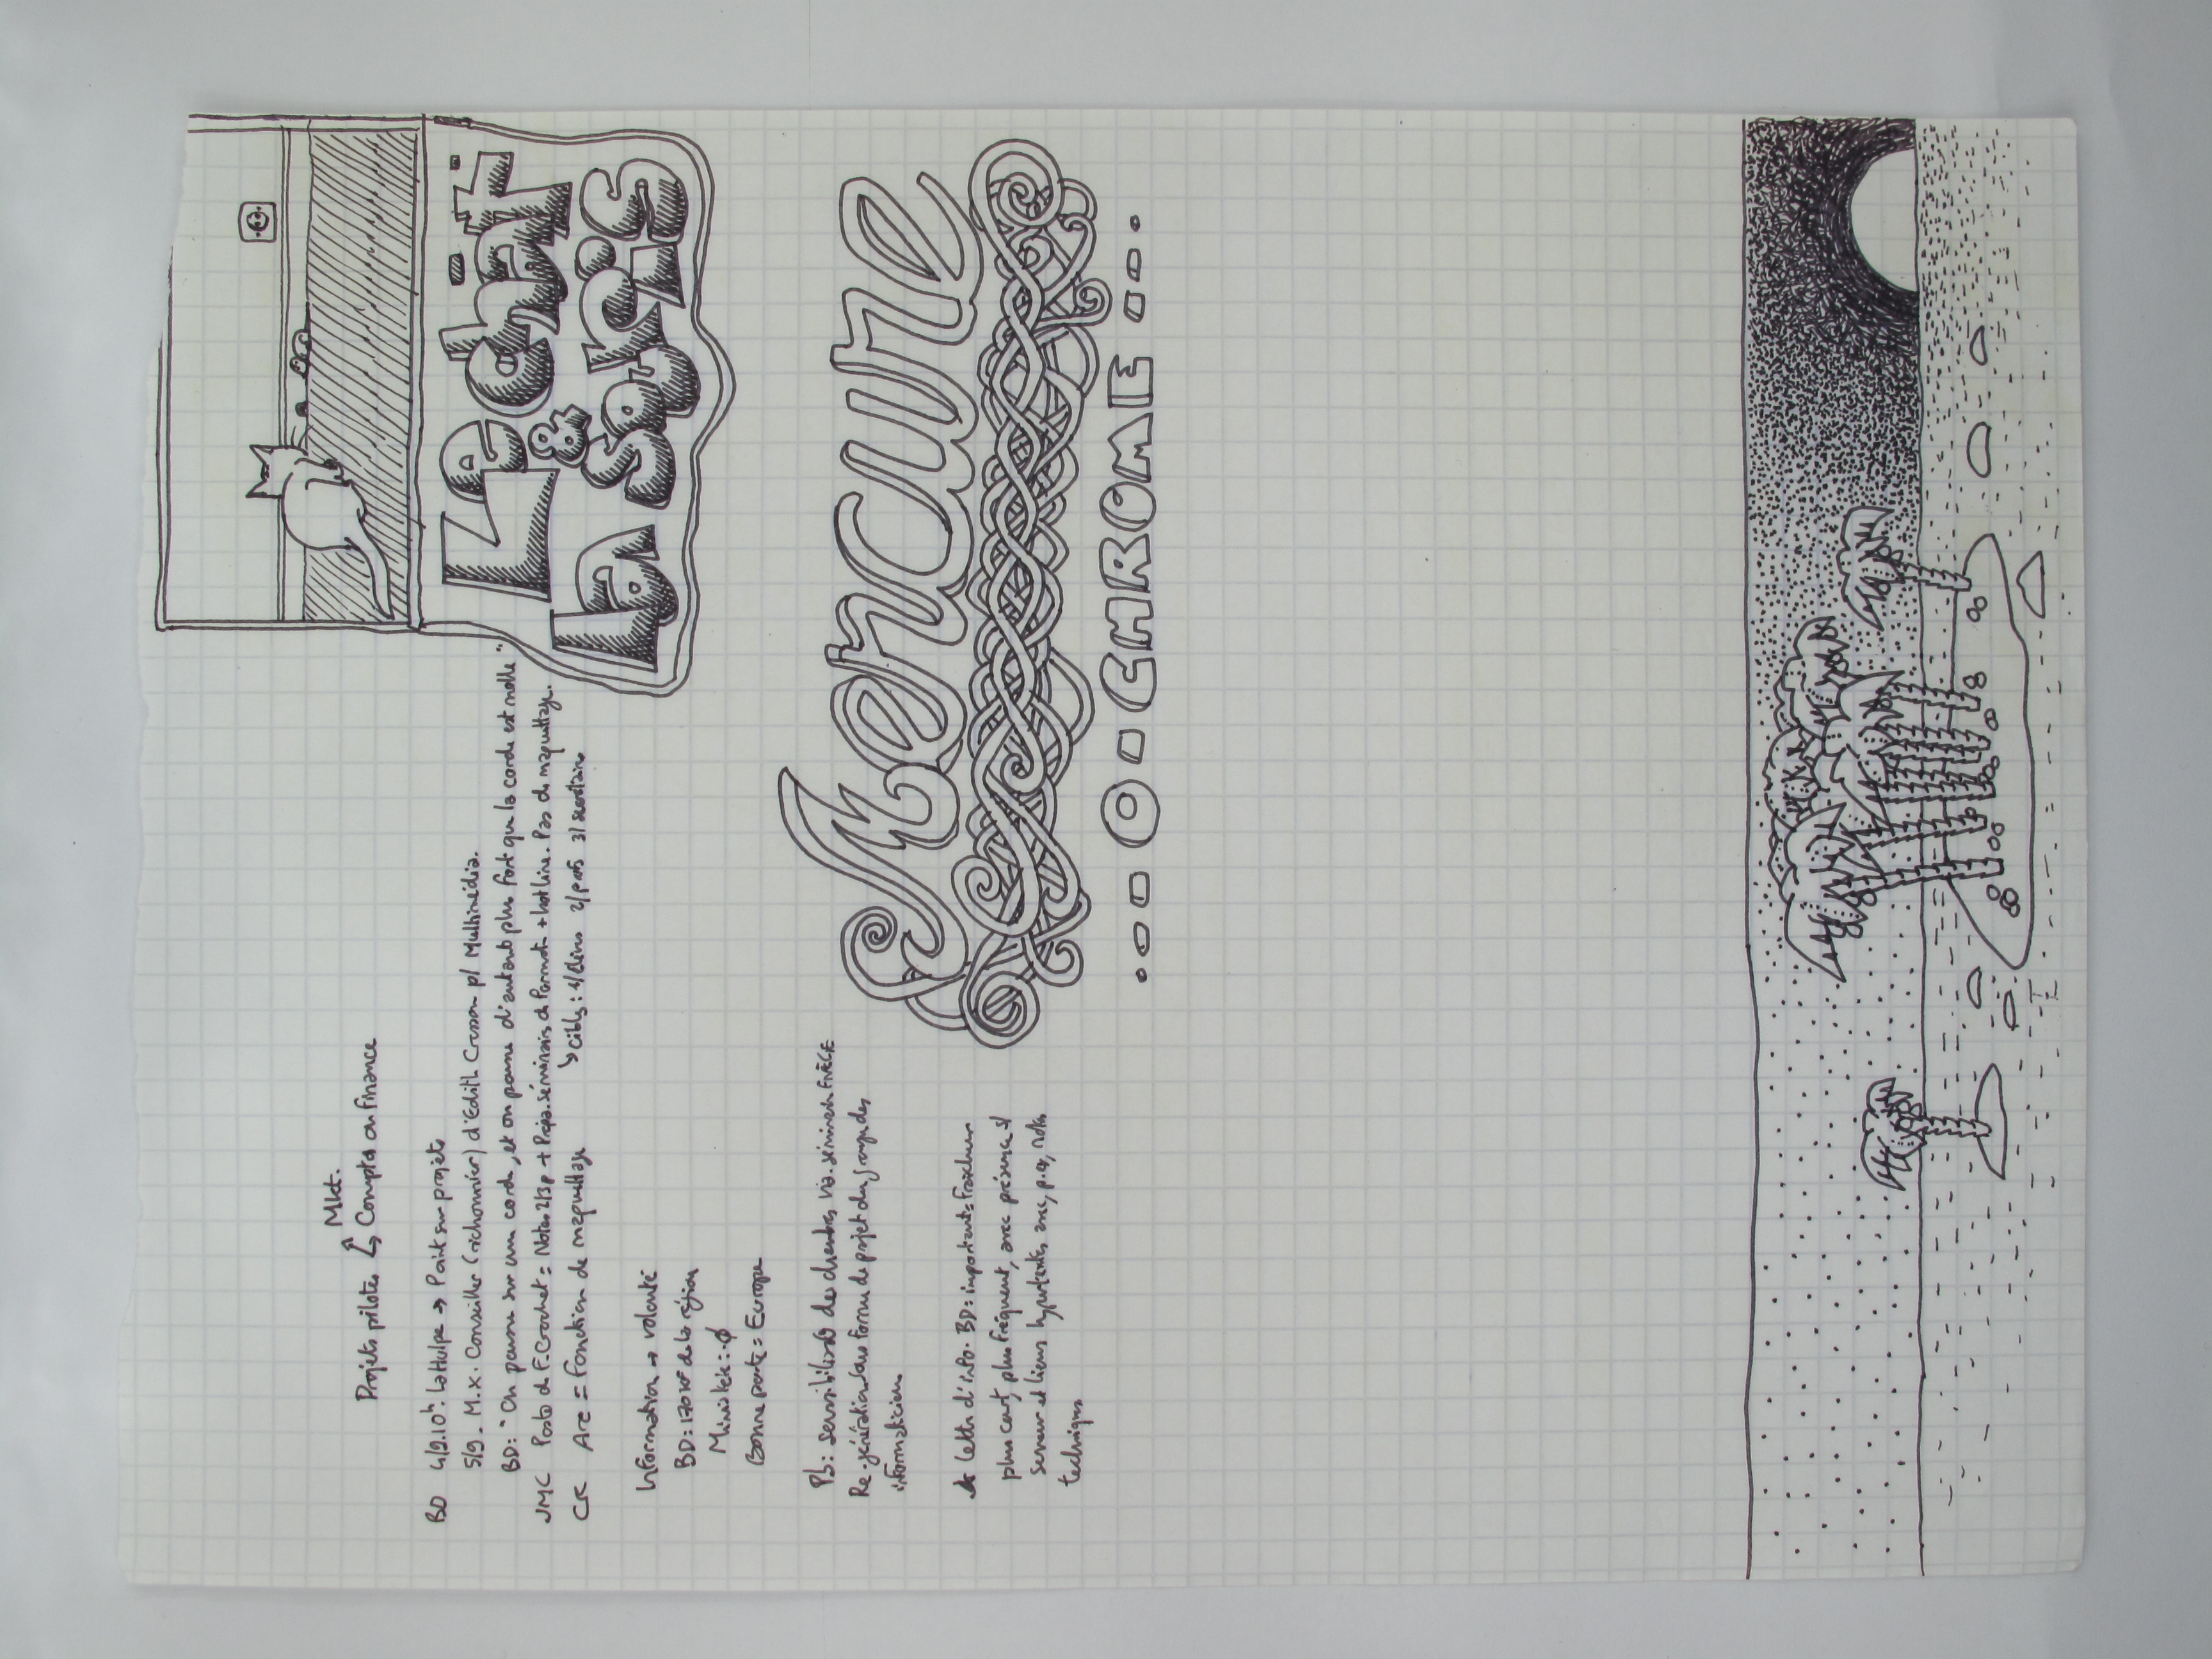 Projets pilotes
Mkt.
Comptes ou finance
BD 4/9.10h: La Hulpe → Point sur projets
5/9. M.X. Conseiller (nichonnier) d'Edith Cresson p/ Multimédia.
BD: "On pousse sur une corde, et on pousse d'autant plus fort que la corde est molle"
JMC Poste de F. Crochet = Notes 2/3p + Prépa. séminaires de Format + hotline. Pas de maquettage.
CK Arc = Fonction de maquettage
↳ cibles: 1/élus 2/prof 3/secrétaires
Information → volonté
BD: 170 KF de la région
Ministère: Ø
Bonne porte = Europe
Pb: sensibilisat° des chambres via séminaire
Re-génération sous forme de projet du groupe des
informaticiens
Lettre d'info. BD: important = Fraîcheur
plus court, plus fréquent, avec présence s/
serveur et liens hypertexte avec, p.ex, notes
techniques
Le chat
&
la souris
Mercure
CHROME